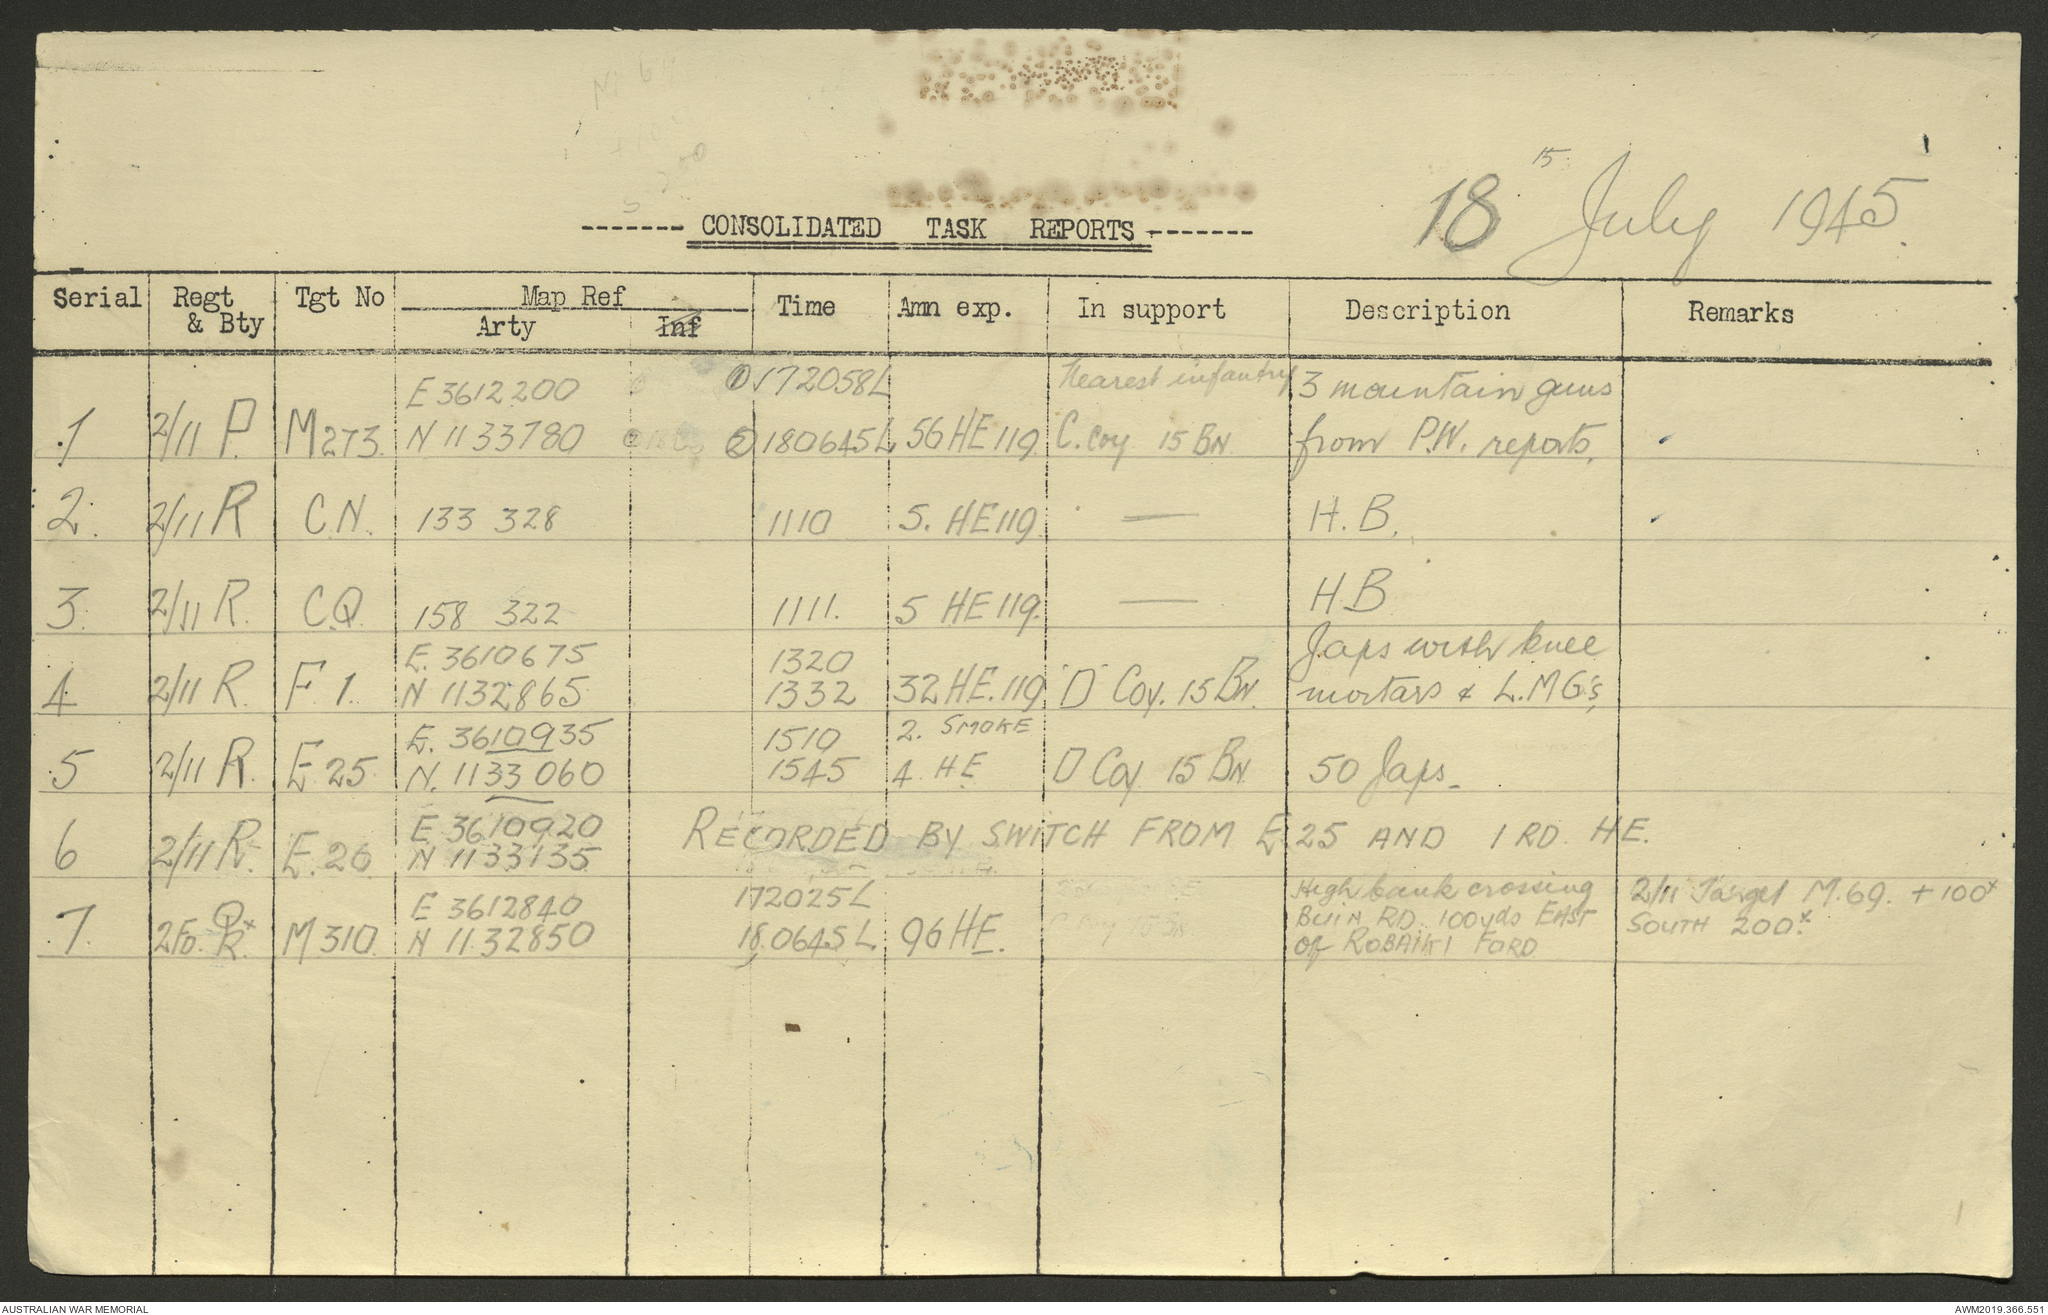 15
18 July 1945.
------- CONSOLIDATED TASK REPORTS -------
Serial Regt & Bty Tgt No Map Ref Arty Inf Time Amn exp. In support Description Remarks
E 3612200 ① 172058L Nearest infantry 3 mountain guns
1 2/11 P. M273. N 1133780 ② 180645L 56 HE 119. C. Coy 15 BN. from P.W. reports.
2. 2/11 R C.N. 133 328 1110 5. HE 119. — H.B.
3. 2/11 R. C.Q. 158 322 1111. 5 HE 119. — H.B
E. 3610675 1320 Japs with knee
4 2/11 R. F 1. N 1132865 1332 32 HE. 119. 'D' Coy. 15 BN. mortars & L.M.G's,
E. 3610935 1510 2. SMOKE
5 2/11 R. E 25 N. 1133 060 1545 4 HE D Coy 15 BN 50 Japs.
E 3610920 RECORDED BY SWITCH FROM E 25 AND 1 RD. HE.
6 2/11 R. E. 26 N 1133135
E 3612840 172025L High bank crossing 2/11 Target M.69. + 100x
7. 2 Fd. Q x R. M 310. N 1132850 18.0645L 96 HE. C Coy 15 BN BUIN RD. 100yds EAST SOUTH 200x.
of ROBAIKI FORD
AUSTRALIAN WAR MEMORIAL AWM2019.366.551